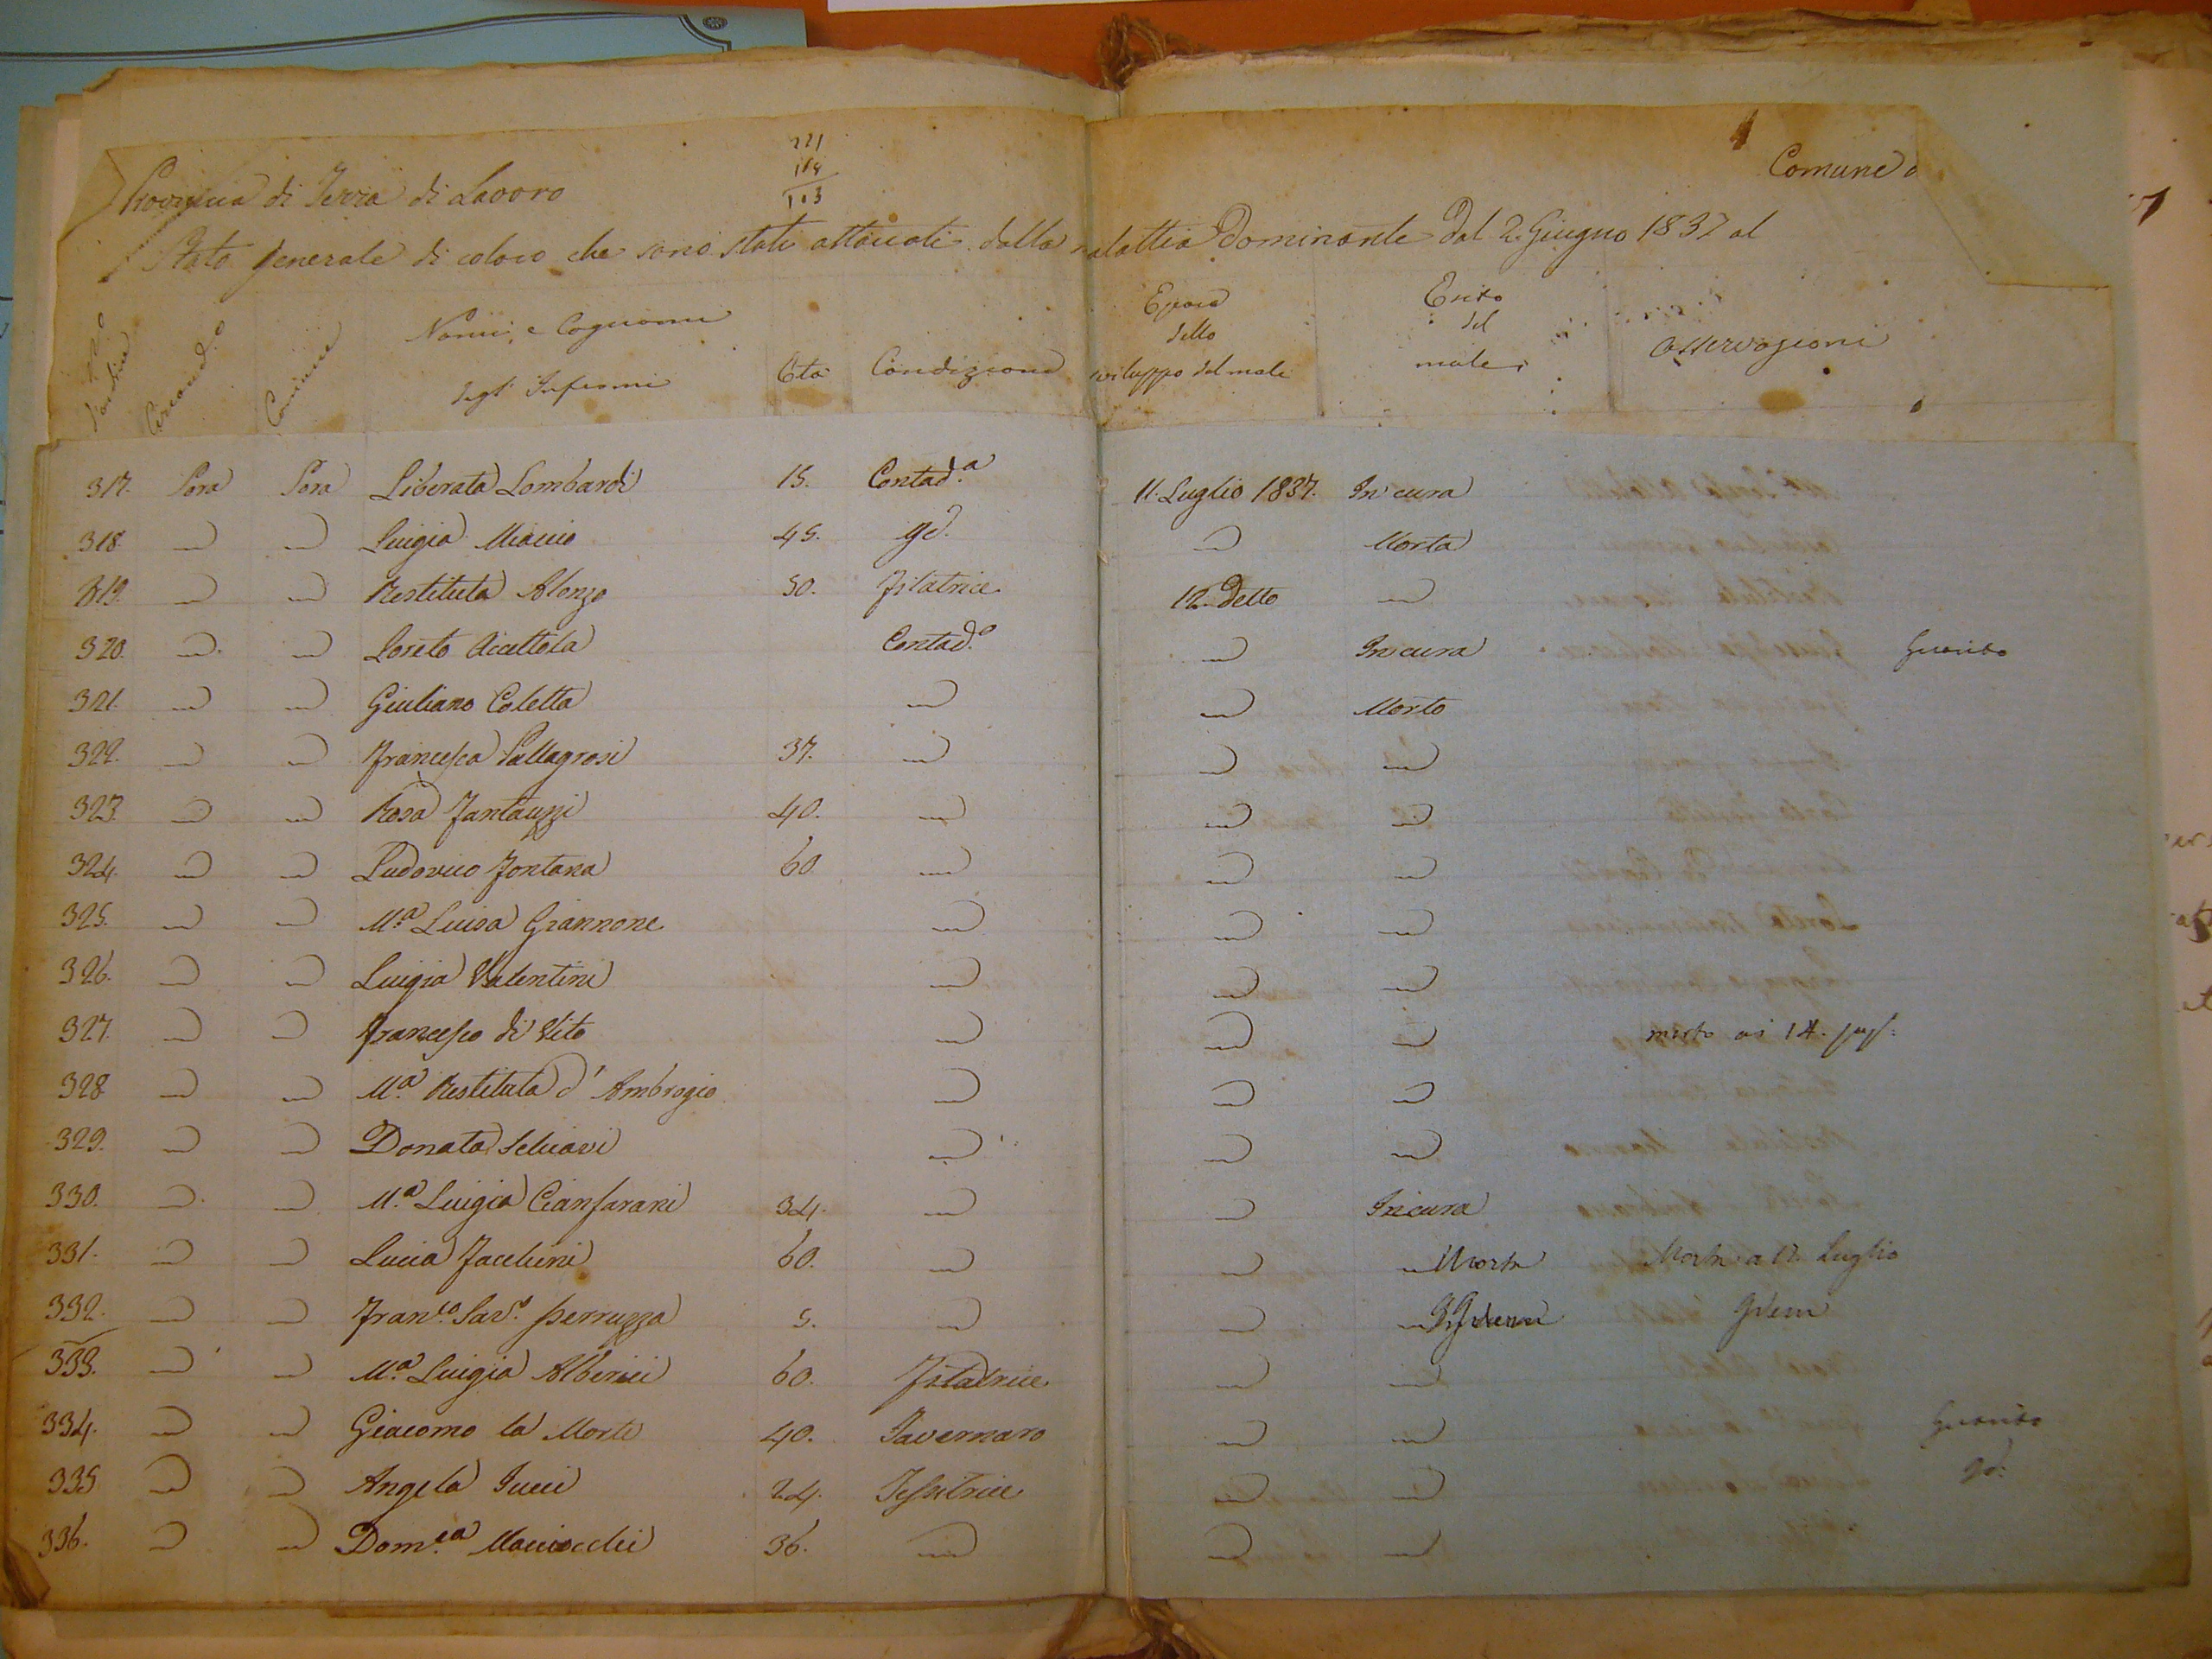 221
118
103
Provincia di Terra di Lavoro
Comune d
Stato generale di coloro che sono stati attaccati dalla malattia dominante dal 2 Giugno 1837 al
N.o d'ordine Circond.o Comune Nomi, e Cognomi degl' Infermi Età Condizione Epoca dello sviluppo del male Esito del male Osservazioni
317. Sora Sora Liberata Lombardi 15. Contad.a 11. Luglio 1837. In cura
318. Luigia 45. Id. Morta
319. Restituta Alonzo 50. Filatrice 12. Detto
320. Loreto Accettola Contad.o In cura Guarito
321. Giuliano Coletta Morto
322. Francesca Pallagrosi 37.
323. Rosa Fantauzzi 40.
324. Ludovico Fontana 60
325. M.a Luisa Giannone
326. Luigia Valentini
327. Francesco di Vito morto ai 14.
328 M.a Restituta d'Ambrogio
329. Donata
330. M.a Luigia Cianfarani 34. In cura
331. Lucia Facchini 60. Morta Morta a 17. Luglio
332. Fran.co Sav.o Perruzza 5. Idem Idem
333. M.a Luigia Alberici 60. Filatrice
334. Giacomo la Morte 40. Tavernaro Guarito
335 Angela Tucci 24. Tessitrice Id.
336. Dom.ca Macciocchi 36.